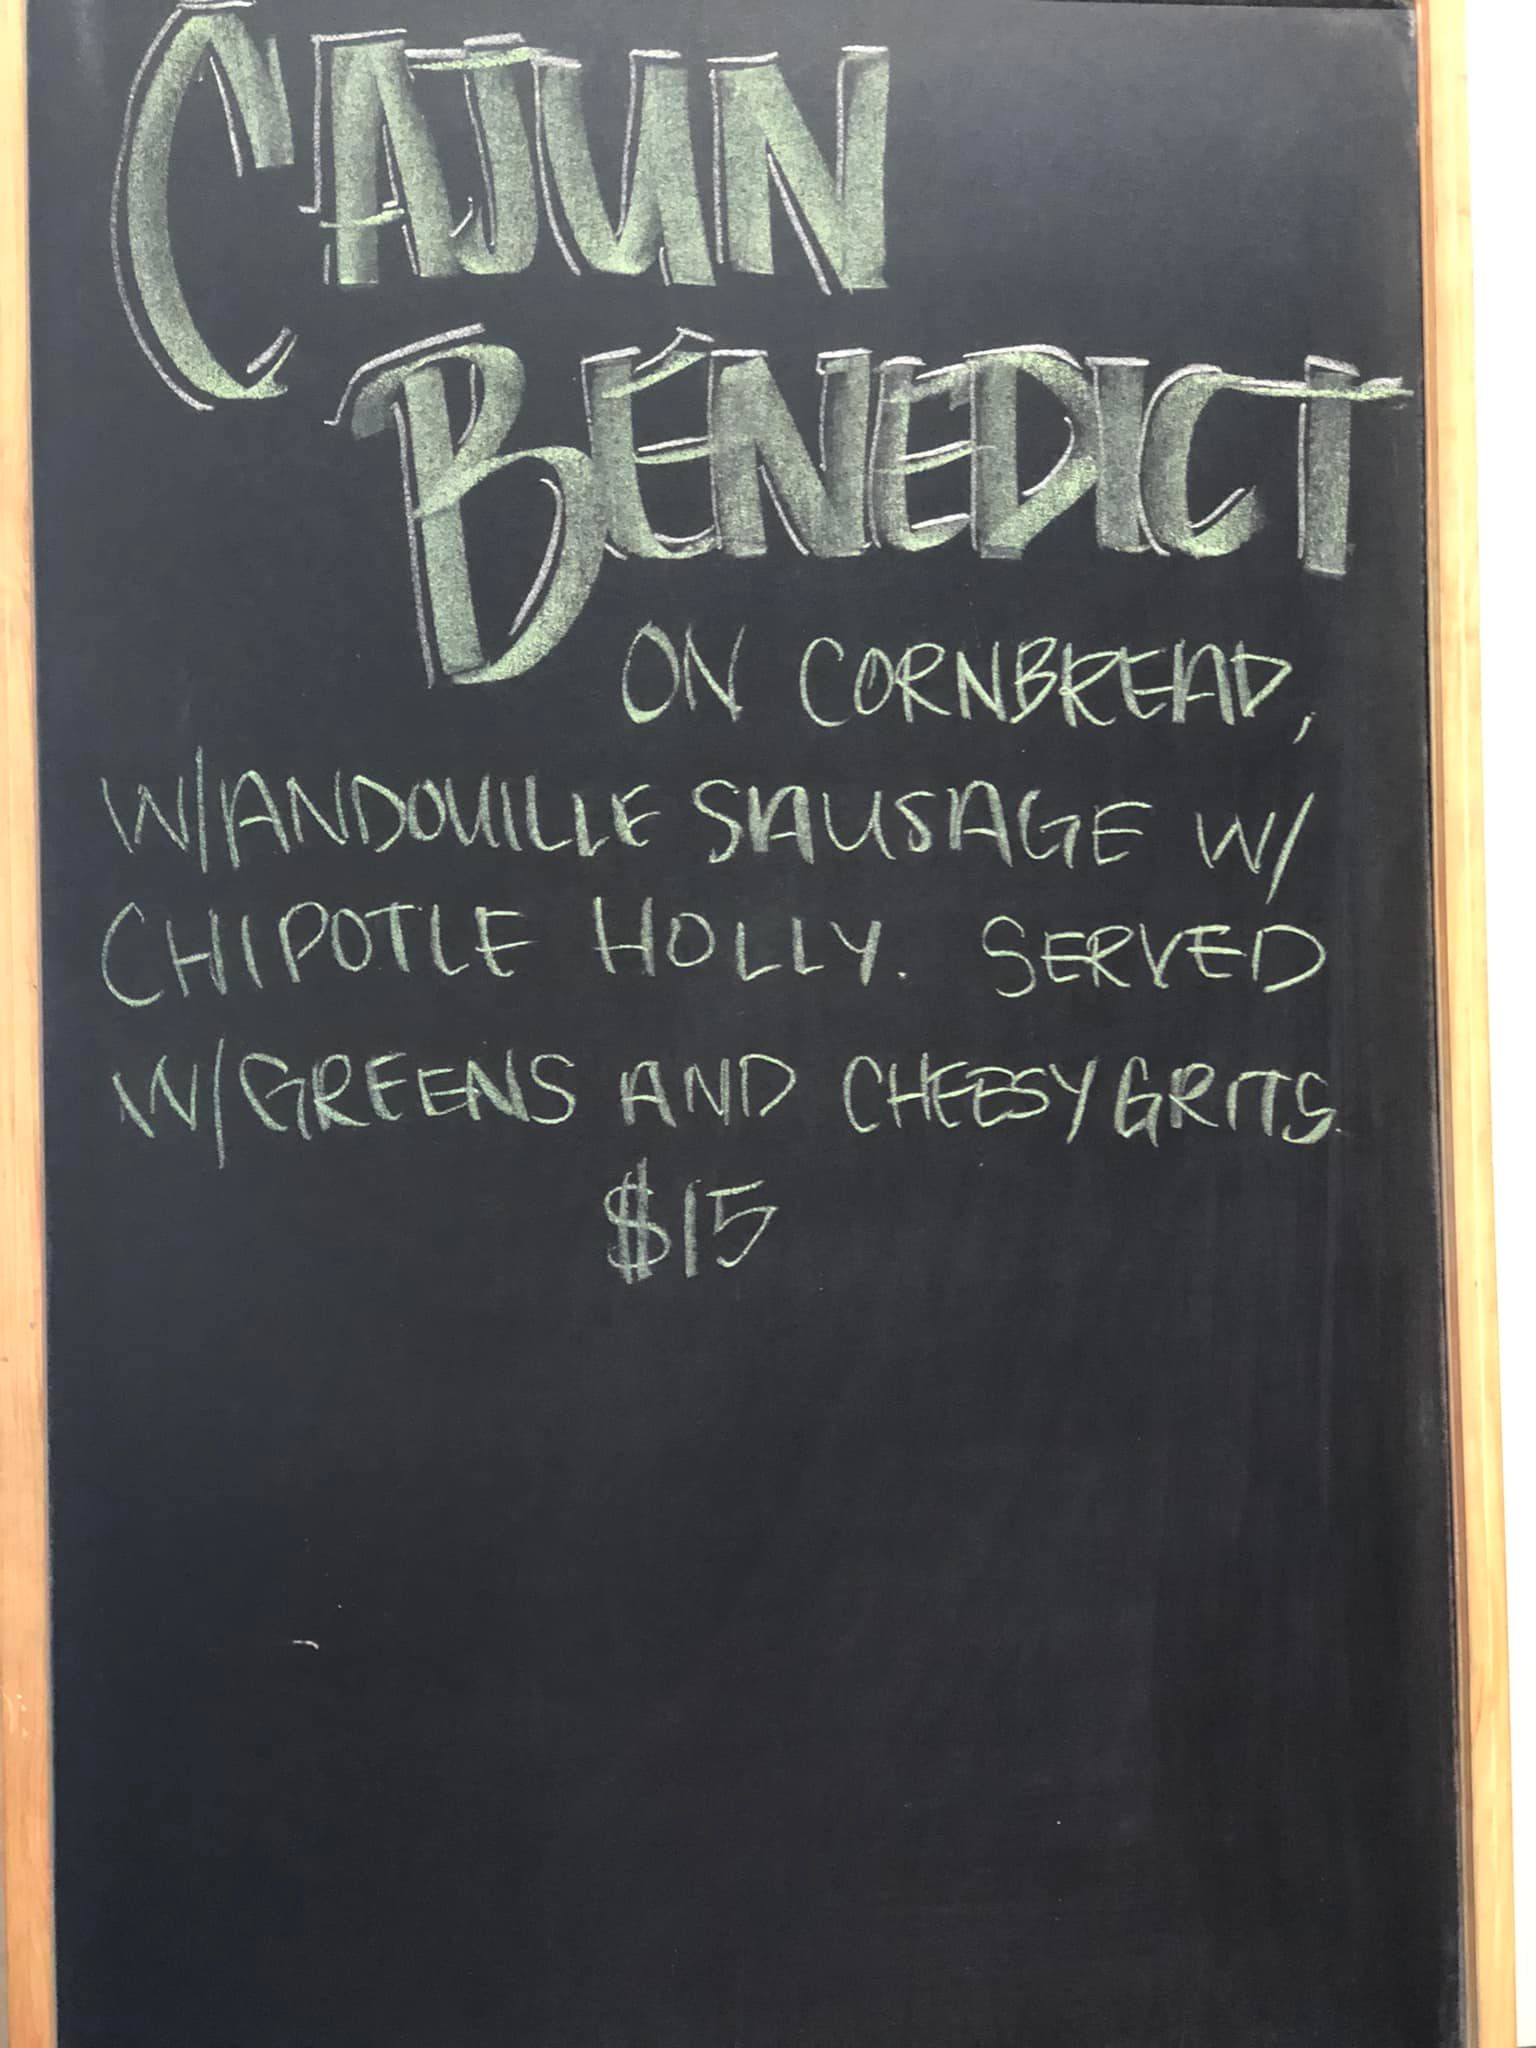 CAJUN
BENEDICT
ON CORNBREAD,
W/ANDOUILLE SAUSAGE W/
CHIPOTLE HOLLY. SERVED
W/GREENS AND CHEESY GRITS.
$15